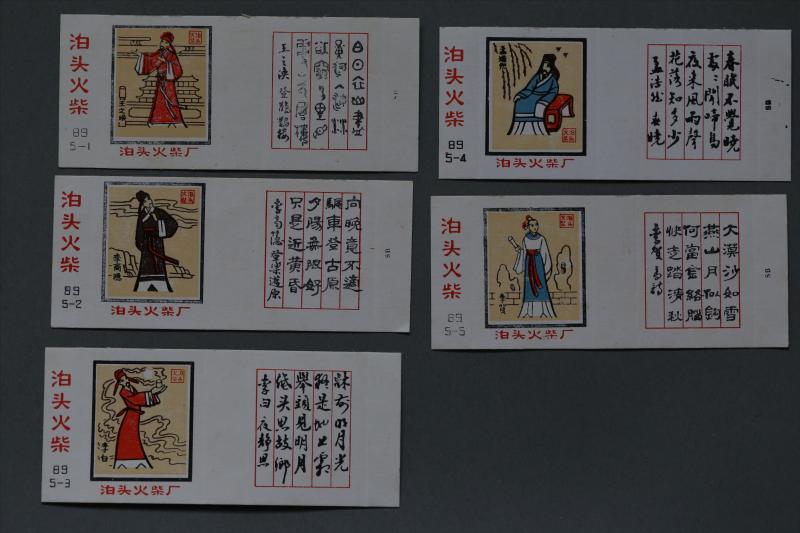 泊头火柴
89
5-1
王之涣
泊头火柴厂
白日依山尽
黄河入海流
王之涣 登鹳鹊楼
泊头火柴
89
5-2
李商隐
泊头火柴厂
向晚意不适
驱车登古原
夕阳无限好
只是近黄昏
李商隐 登乐游原
泊头火柴
89
5-3
李白
泊头火柴厂
床前明月光
疑是地上霜
举头见明月
低头思故乡
李白 夜静思
泊头火柴
89
5-4
孟浩然
春眠不觉晓
处々闻啼鸟
夜来风雨声
花落知多少
孟浩然 春晓
泊头火柴厂
泊头火柴
89
5-5
李贺
大漠沙如雪
燕山月似钩
何当金络脑
快走踏清秋
李贺 马诗
泊头火柴厂